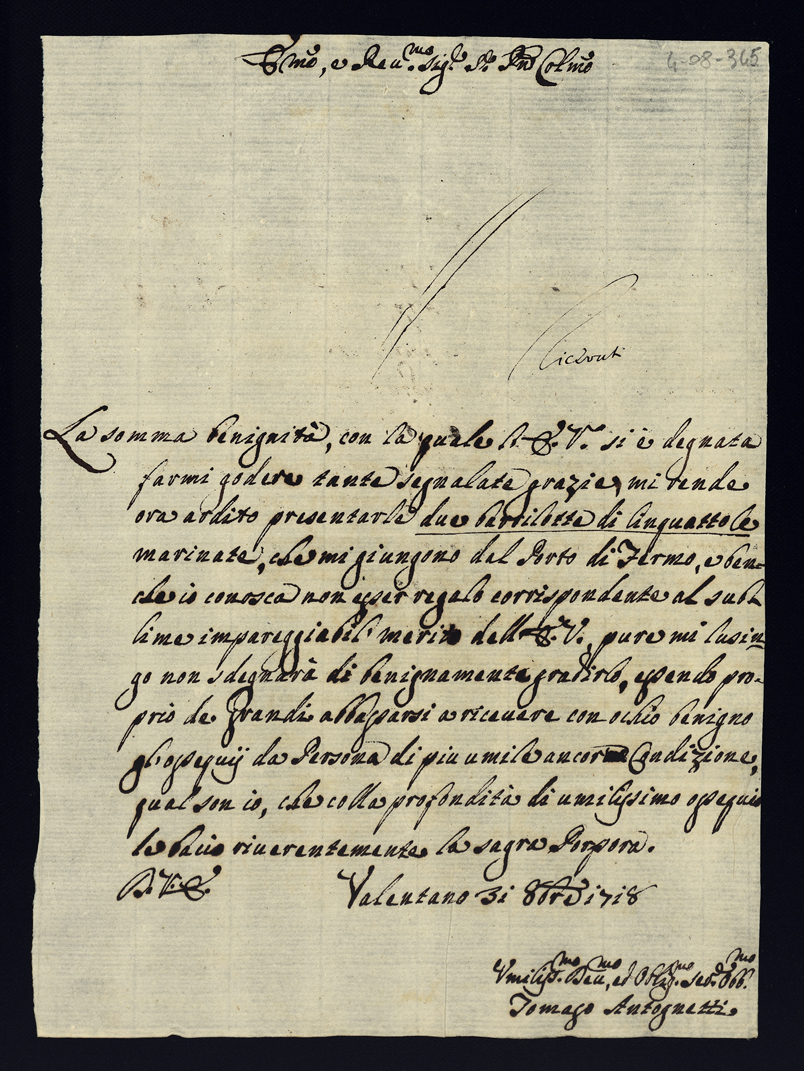 Emo, e Reu.mo Sig.r S.r Pne Colmo
4-08-365
La somma benignità, con la quale l'E.V. si è degnata
farmi godere tante segnalate grazie, mi rende
ora ardito presentarle due barrilotte di Cinquattole
marinate, che mi giungono dal Porto di Fermo, e ben-
che io conosca non esser regalo corrispondente al sub-
lime impareggiabil' merito dell'E.V., pure mi lusin-
go non sdegnarà di benignamente gradirlo, essendo pro-
prio de Grandi abbassarsi a riceuere con ochio benigno
gl'ossequij da Persona di piu umile ancor Condizione,
qual son io, che colla profondità di umilissimo ossequio
le bacio riuerentemente la sagra Porpora.
D.V.E. Valentano 31 8bre 1718
Vmiliss.mo Deu.mo, ed Oblig.mo Ser.e Obb.mo
Tomaso Antognetti